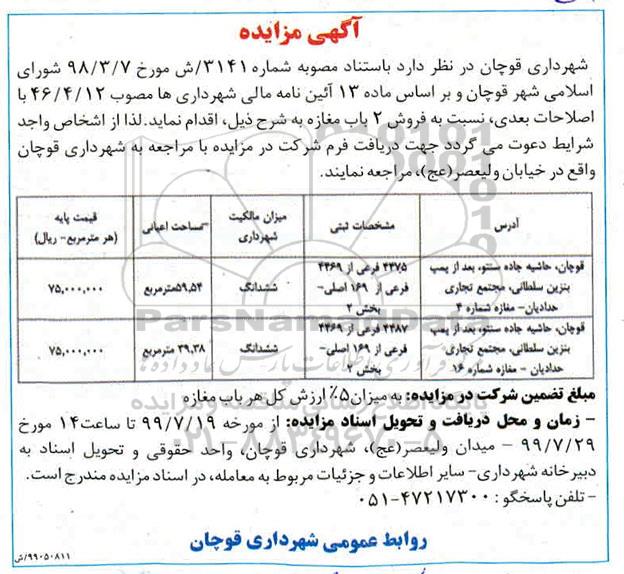 آگهی مزایده
شهرداری قوچان در نظر دارد باستناد مصوبه شماره ۳۱۴۱/ش مورخ ۹۸/۳/۷ شورای
اسلامی شهر قوچان و بر اساس ماده ۱۳ آئین نامه مالی شهرداری ها مصوب ۴۶/۴/۱۲ با
اصلاحات بعدی، نسبت به فروش ۲ باب مغازه به شرح ذیل، اقدام نماید.لذا از اشخاص واجد
شرایط دعوت می گردد جهت دریافت فرم شرکت در مزایده با مراجعه به شهرداری قوچان
واقع در خیابان ولیعصر(عج)، مراجعه نمایند.
آدرس
مشخصات ثبتی
میزان مالکیت
شهرداری
مساحت اعیانی
قیمت پایه
(هر مترمربع- ریال)
قوچان، حاشیه جاده سنتو، بعد از پمپ
بنزین سلطانی، مجتمع تجاری
حدادیان- مغازه شماره ۴
۴۴۷۵ فرعی از ۴۴۶۹
فرعی از ۱۶۹ اصلی-
بخش ۲
ششدانگ
۵۹,۵۴مترمربع
۷۵,۰۰۰,۰۰۰
قوچان، حاشیه جاده سنتو، بعد از پمپ
بنزین سلطانی، مجتمع تجاری
حدادیان - مغازه شماره ۱۶
۴۴۸۷ فرعی از ۴۴۶۹
فرعی از ۱۶۹ اصلی-
بخش ۲
ششدانگ
۳۹,۳۸ مترمربع
۷۵,۰۰۰,۰۰۰
مبلغ تضمین شرکت در مزایده: به میزان ۵٪ ارزش کل هر باب مغازه
- زمان و محل دریافت و تحویل اسناد مزایده: از مورخه ۹۹/۷/۱۹ تا ساعت۱۴ مورخ
۹۹/۷/۲۹ - میدان ولیعصر(عج)، شهرداری قوچان، واحد حقوقی و تحویل اسناد به
دبیرخانه شهرداری- سایر اطلاعات و جزئیات مربوط به معامله، در اسناد مزایده مندرج است.
- تلفن پاسخگو: ۴۷۲۱۷۳۰۰-۰۵۱
روابط عمومی شهرداری قوچان
۹۹۰۵۰۸۱۱/ش
ParsNamadData
۰۲۱-۸۸۳۴۹۶۷۰-۵